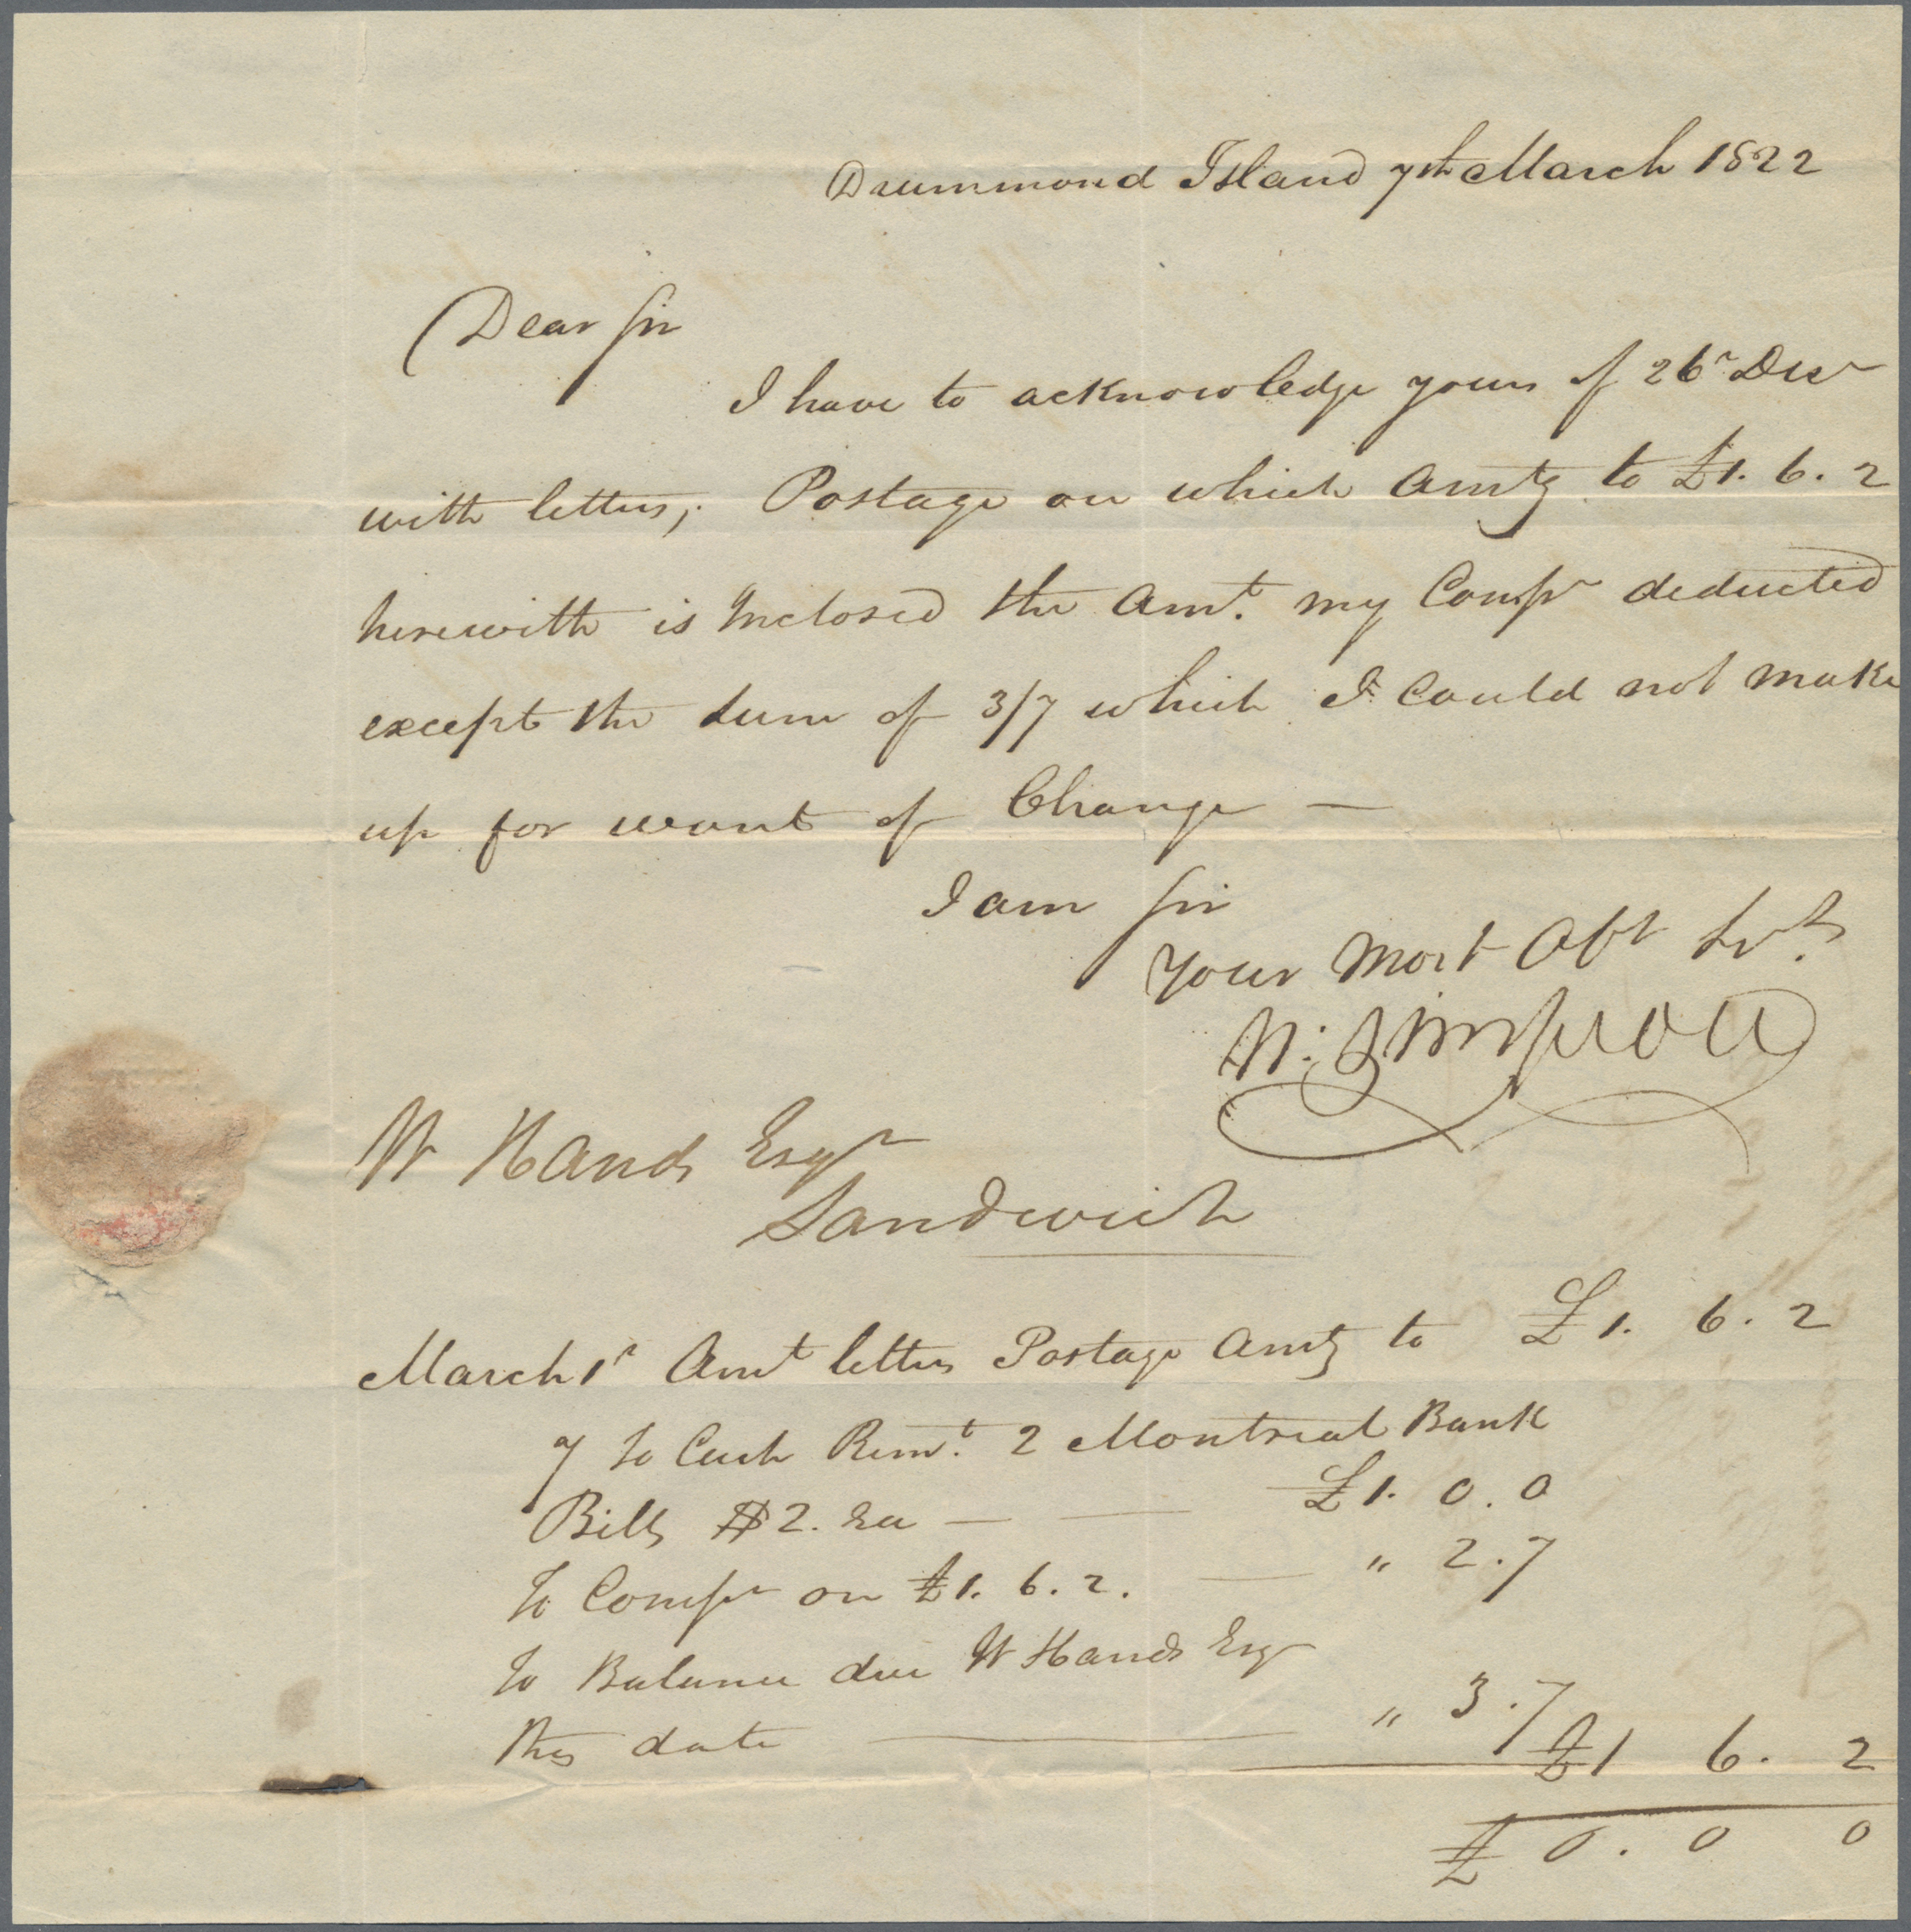 Drummond Island 7th March 1822
Dear Sir
I have to acknowledge yours of 26r Decr
with letters, Postage on which Amtg to £1. 6. 2
herewith is Inclosed the Amt. my Compn deducted
except the sum of 3/7 which I could not make
up for want of Change —
I am Sir
Your Most Obt Svt.
W: Simpson
W Hands Esqr
Sandwich
March 1r Amt letters Postage Amtg to £1. 6. 2
7 To Cash Remt. 2 Montreal Bank
Bills $2. Ea — — £1. 0. 0
To Compn on £1. 6. 2. — " 2. 7
To Balance due W Hands Esqr
this date — " 3. 7
£1 6. 2
£ 0. 0 0